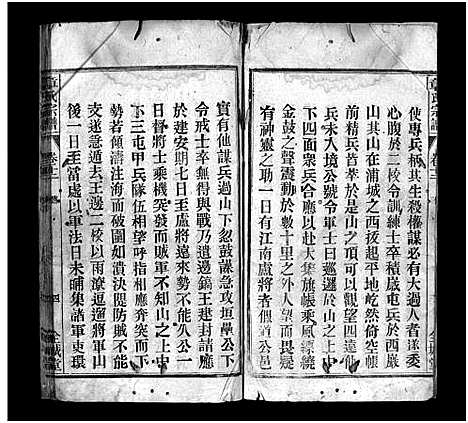 使專兵柄其生殺權謀必有大過人者遂委
心腹於二校令訓練士卒積歲屯兵於西巖
山其山在浦城之西拔起平地屹然倚空帳
前精兵苔萃於是山之上可以觀望四遠仙
兵或入境公號令軍士曰巡邏於山之上中
下四面衆兵合應以赴大集旗幟乘風縹繞
金鼓之聲震動於數十里外人望而畏疑
有神靈之助一日有江南盧將者引衆攻公邑
實有他謀兵過山下忽鼓譟急攻垣壘公下
令戒士卒無得與戰乃遣邊鎬王建封請應
於建安期七日王盧將遠來勢不能久公一
日將士乘機突發而賊軍不知山之上中
下三屯甲兵隊伍相望呼指相應奔突而下
勢若傾濤注海而破圍如潰決隄防賊不能
支遂遁去王邊二校以雨潦逗遛將軍山
後一日至當處以軍法日未晡集諸軍吏環
章氏宗譜
卷廿二
全城堂